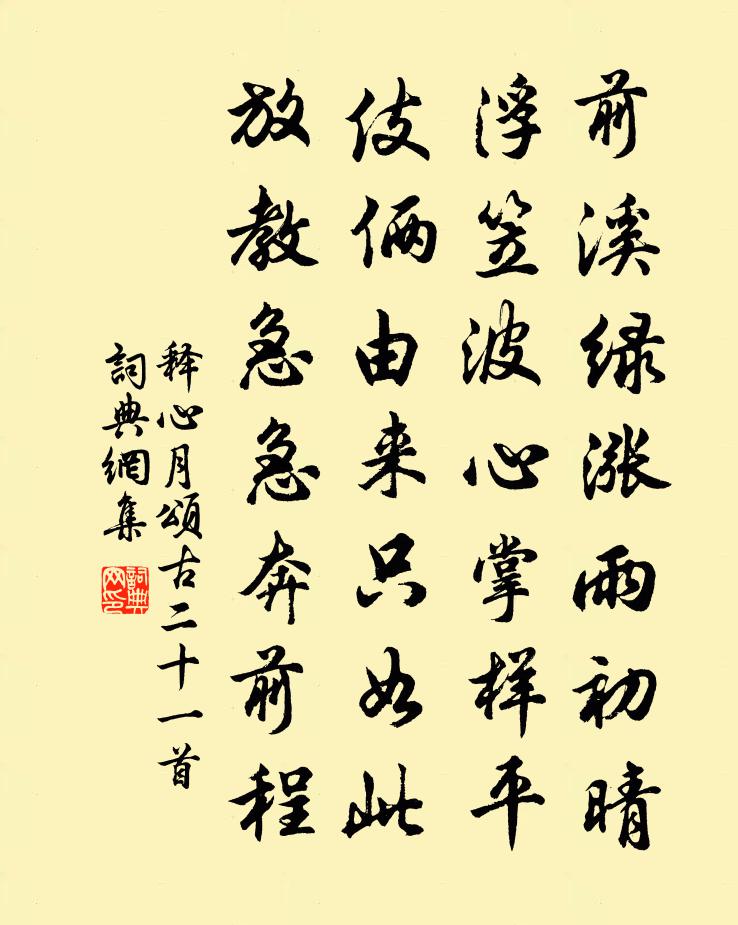 前溪绿涨雨初晴
浮笠波心掌样平
伎俩由来只如此
放教急急奔前程
释心月颂古二十一首
詞典網集
詞典网印